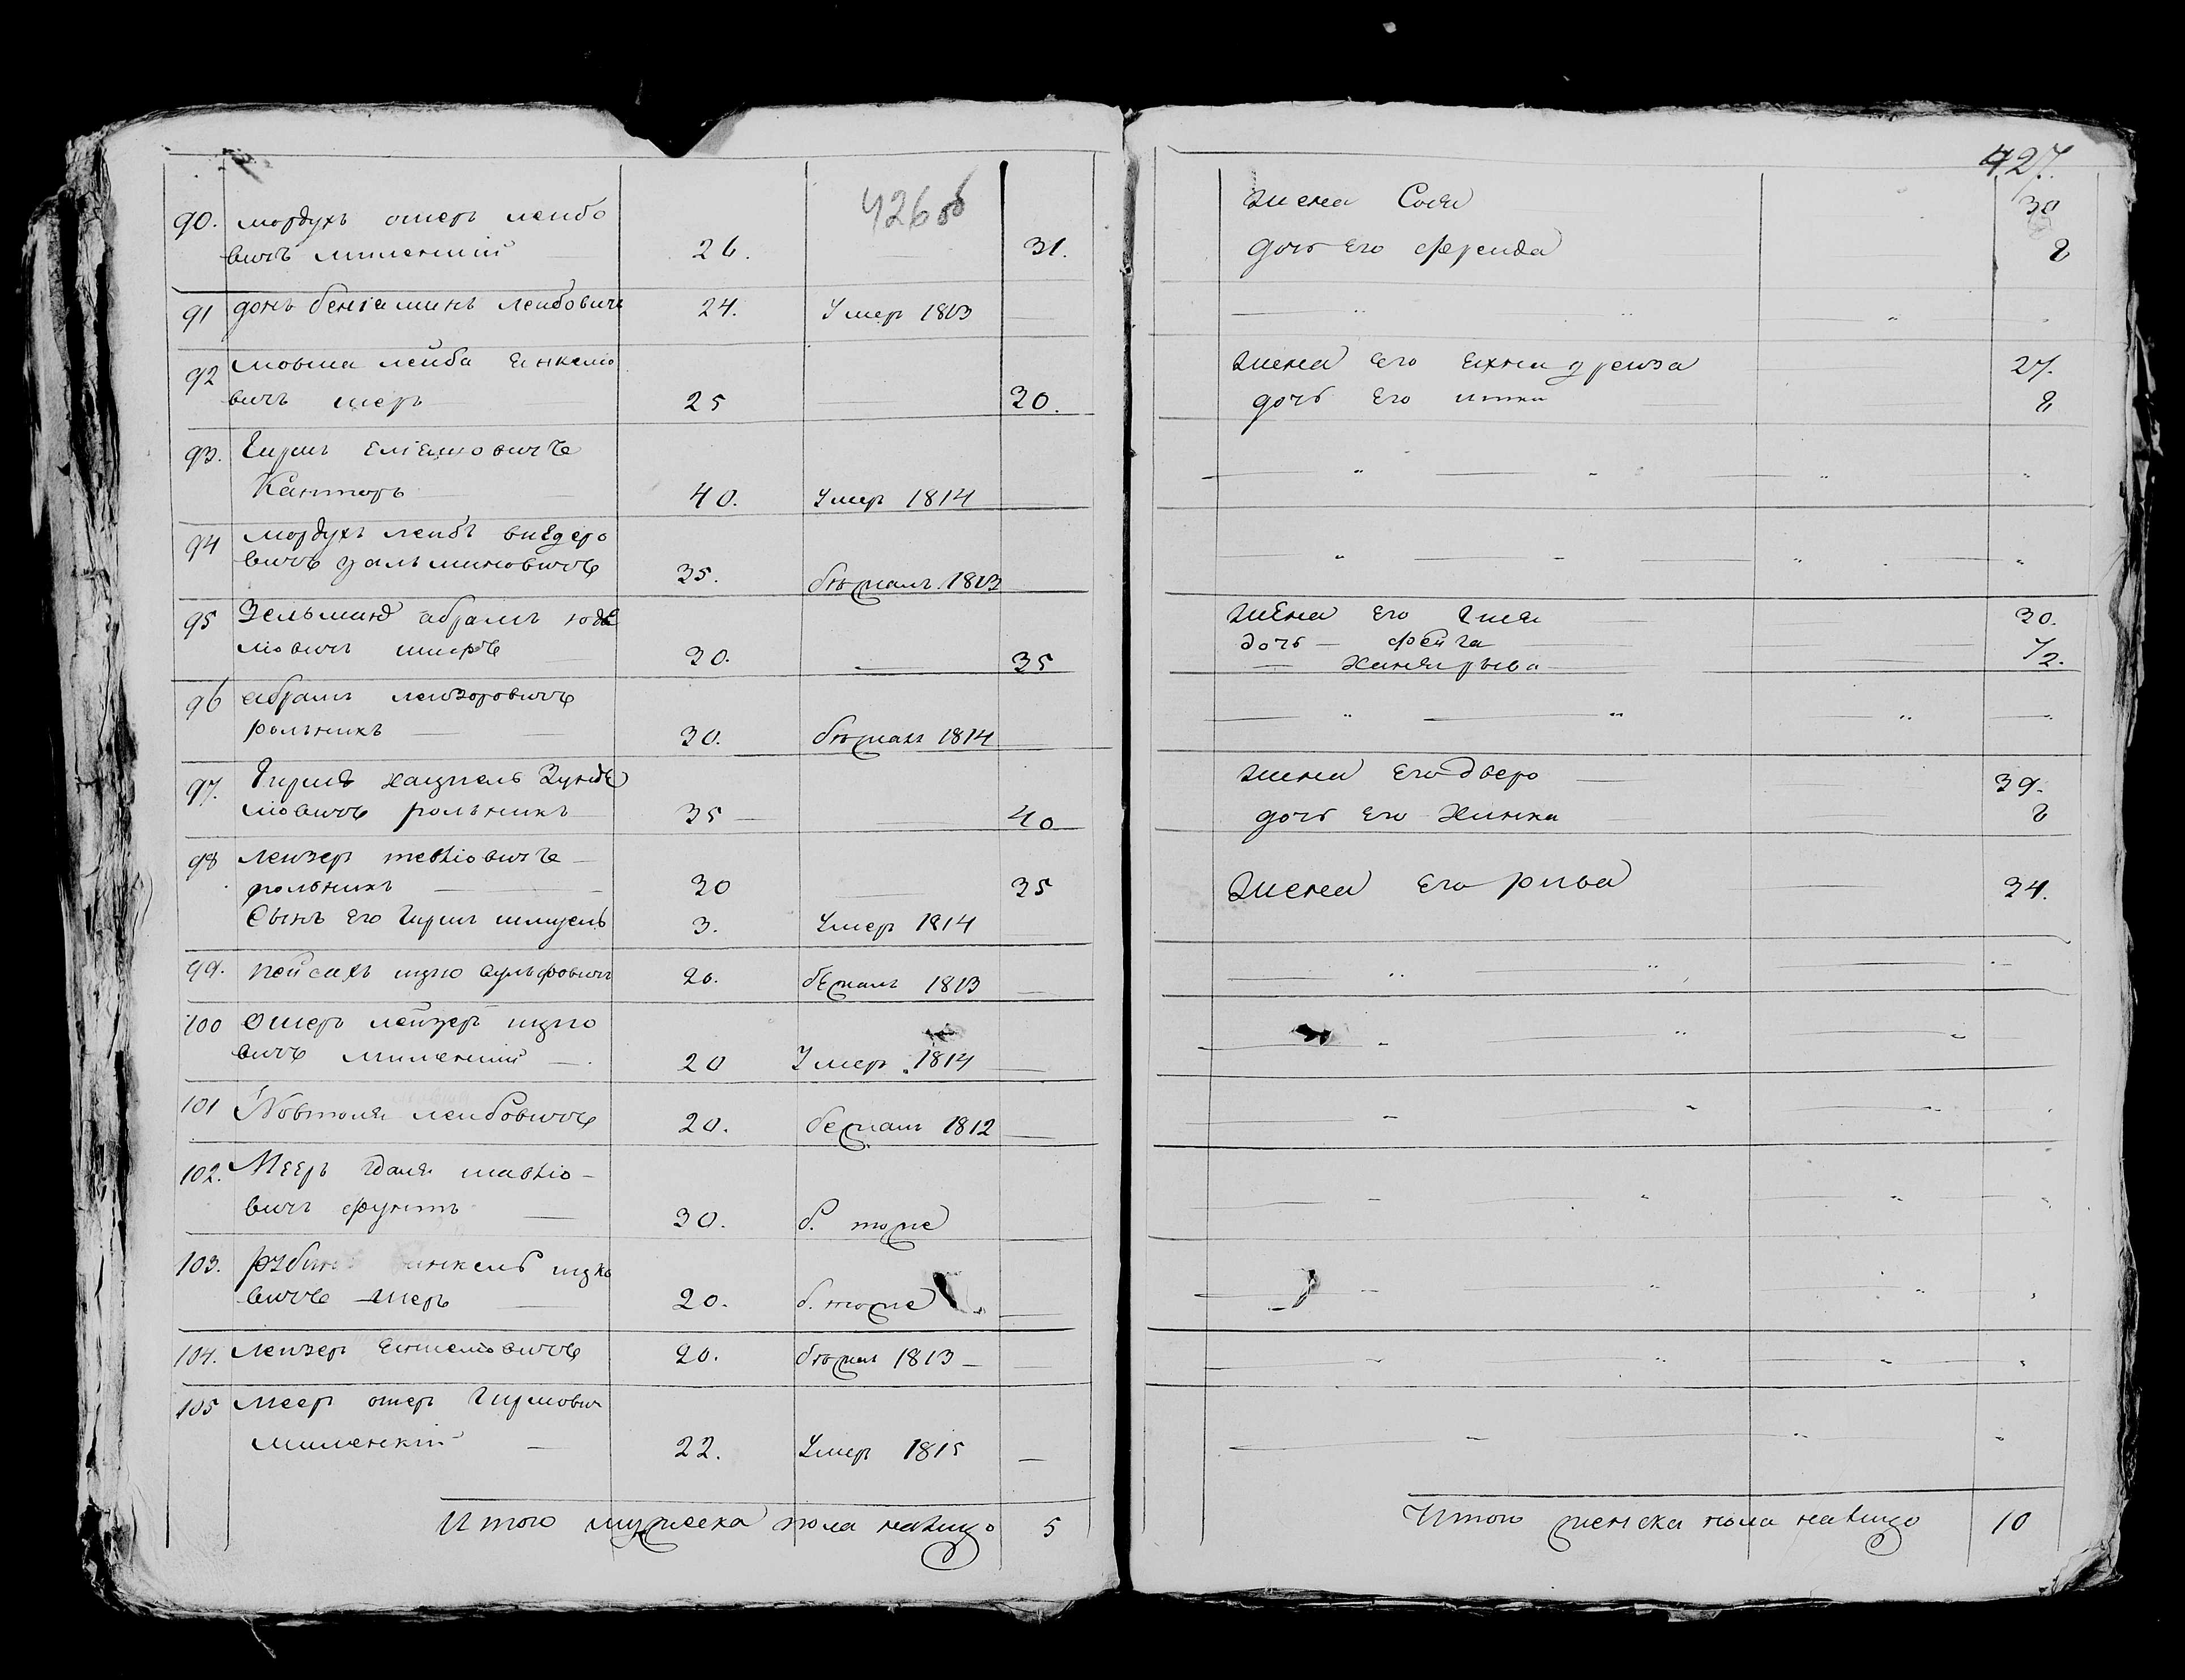 426 об
90. мордухъ ошеръ леибо
вичъ миленкий 26. 31.
91 донъ бениаминъ леибовичъ 24. Умер 1813
92 мовша леиба янкелю
вичъ шеръ 25 30.
93. Гирш елеяшовичъ
Канторъ 40. Умер 1814
94 мордухъ леибъ
вичъ зальмановичъ 35. бѣжалъ 1813
95 абрамъ юдѣ
лювичъ шеръ 30. 35
96 абрамъ леизоровичъ
рольникъ 30. бѣжалъ 1814
97. Гиршъ хацкель Зунде
лювичъ рольникъ 35 40
98 леизеръ тевиовичъ
рольникъ 30 35
Сынъ его Гирш шмуель 3. Умер 1814
99. пейсахъ ицко вульфовичъ 26. бежалъ 1813
100 ошеръ лейзеръ ицко
вичъ миленкий 20 Умеръ 1814
101 Новтоля леибовичъ 20. бежалъ 1812
102. Мееръ гдаля
вичъ фунтъ 30. б. тоже
103. рубинъ янкель ицко
вичъ шеръ 20. б. тоже
104. леизеръ 20. бѣжал 1813
105 меер ошер Гиршович
миленкий 22. Умеръ 1815
Итого мужеска пола налицо 5
427.
жена Сося 30
дочь его фреида 8
жена его ихна дреиза 27.
дочь его итка 8
жена его Гися 30.
дочь фейга 7/2.
— рыва
жена его двера 39.
дочь его хинка 8
жена его рива 34.
Итого женска пола налицо 10